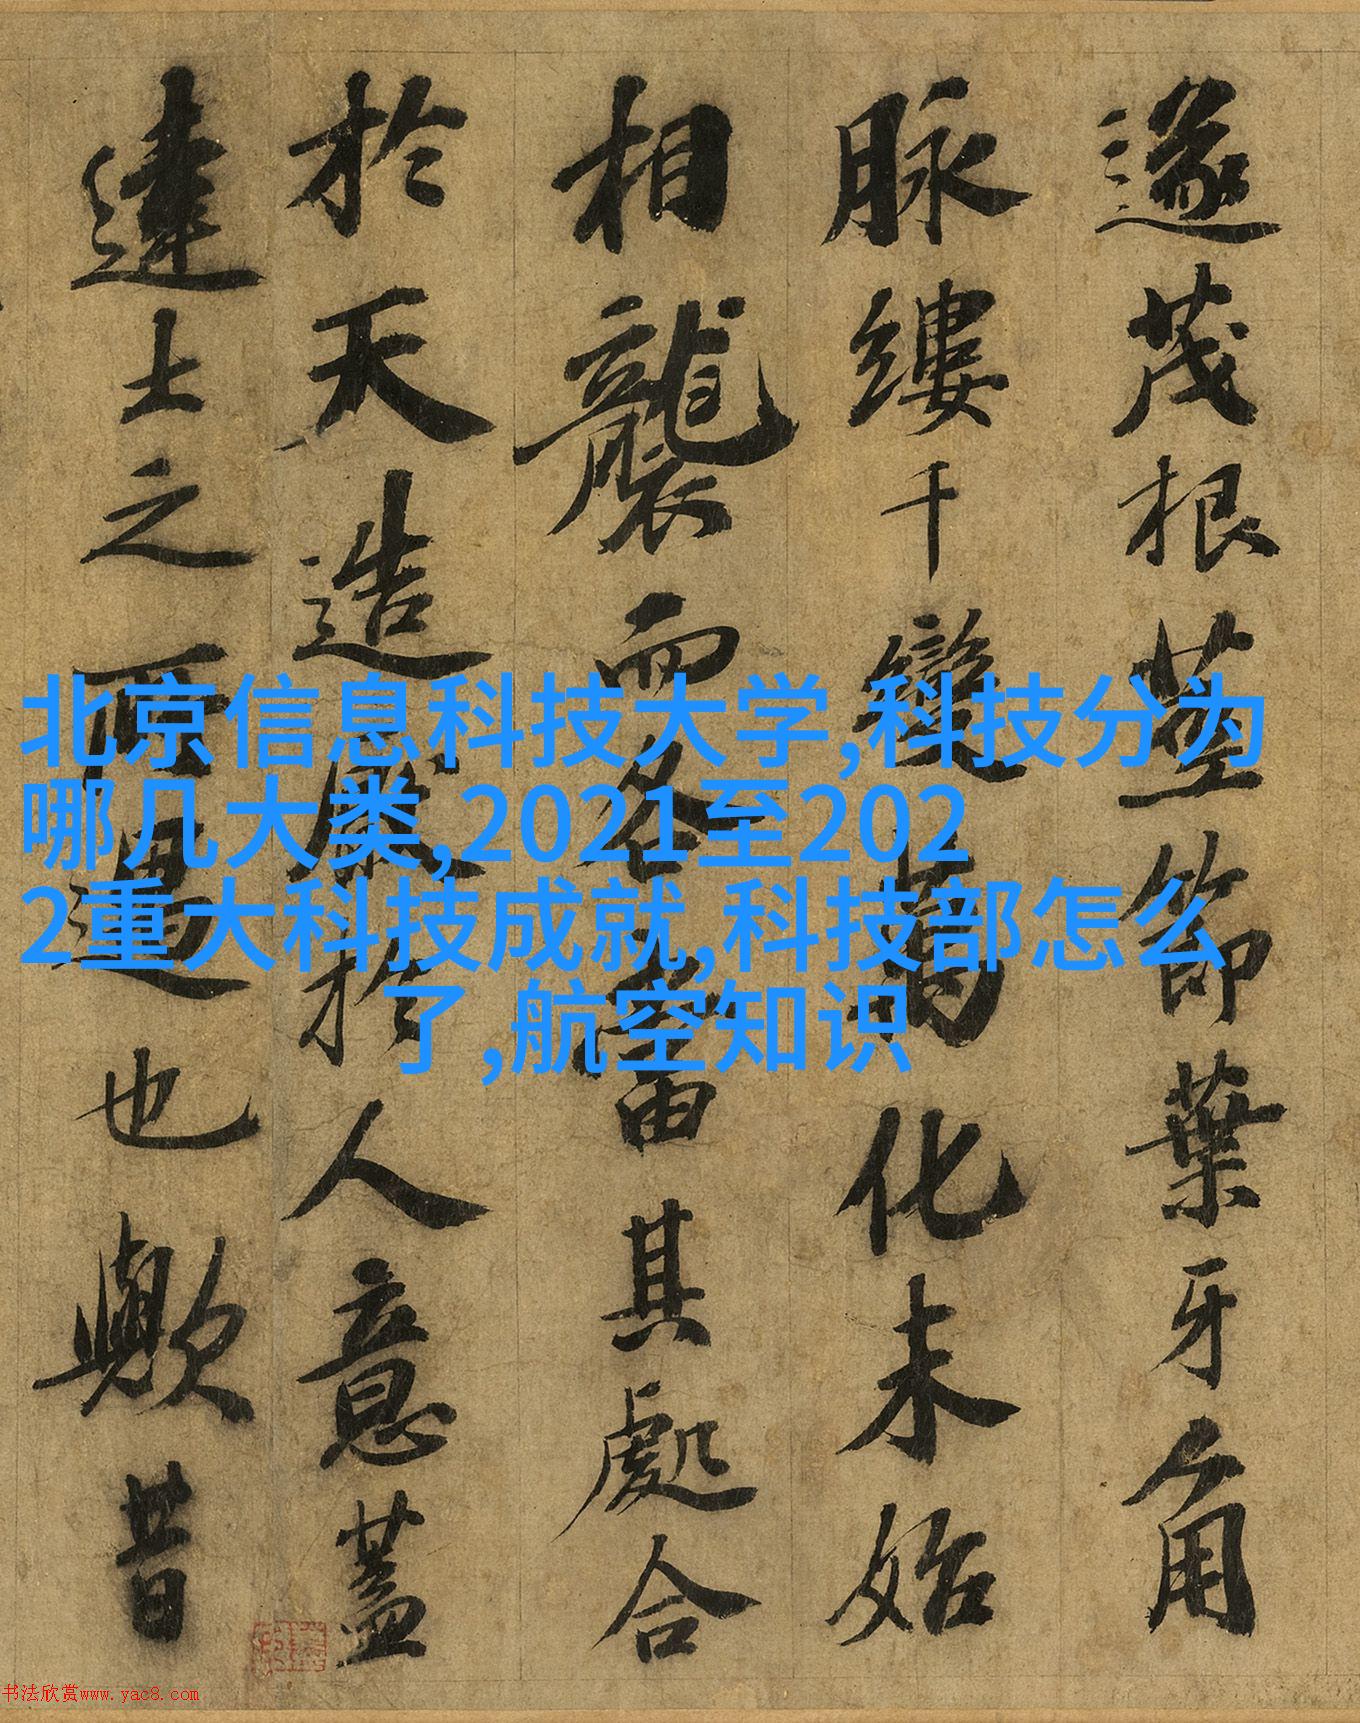 遂茂根莖節葉牙角
脉縷千變萬化未始
相襲而各當其處合
於天造厭於人意蓋
達士之所寓也歟昔
北京信息科技大学,科技分为
哪几大类,2021至202
2重大科技成就,科技部怎么
了,航空知识
书法欣赏www.yac8.com